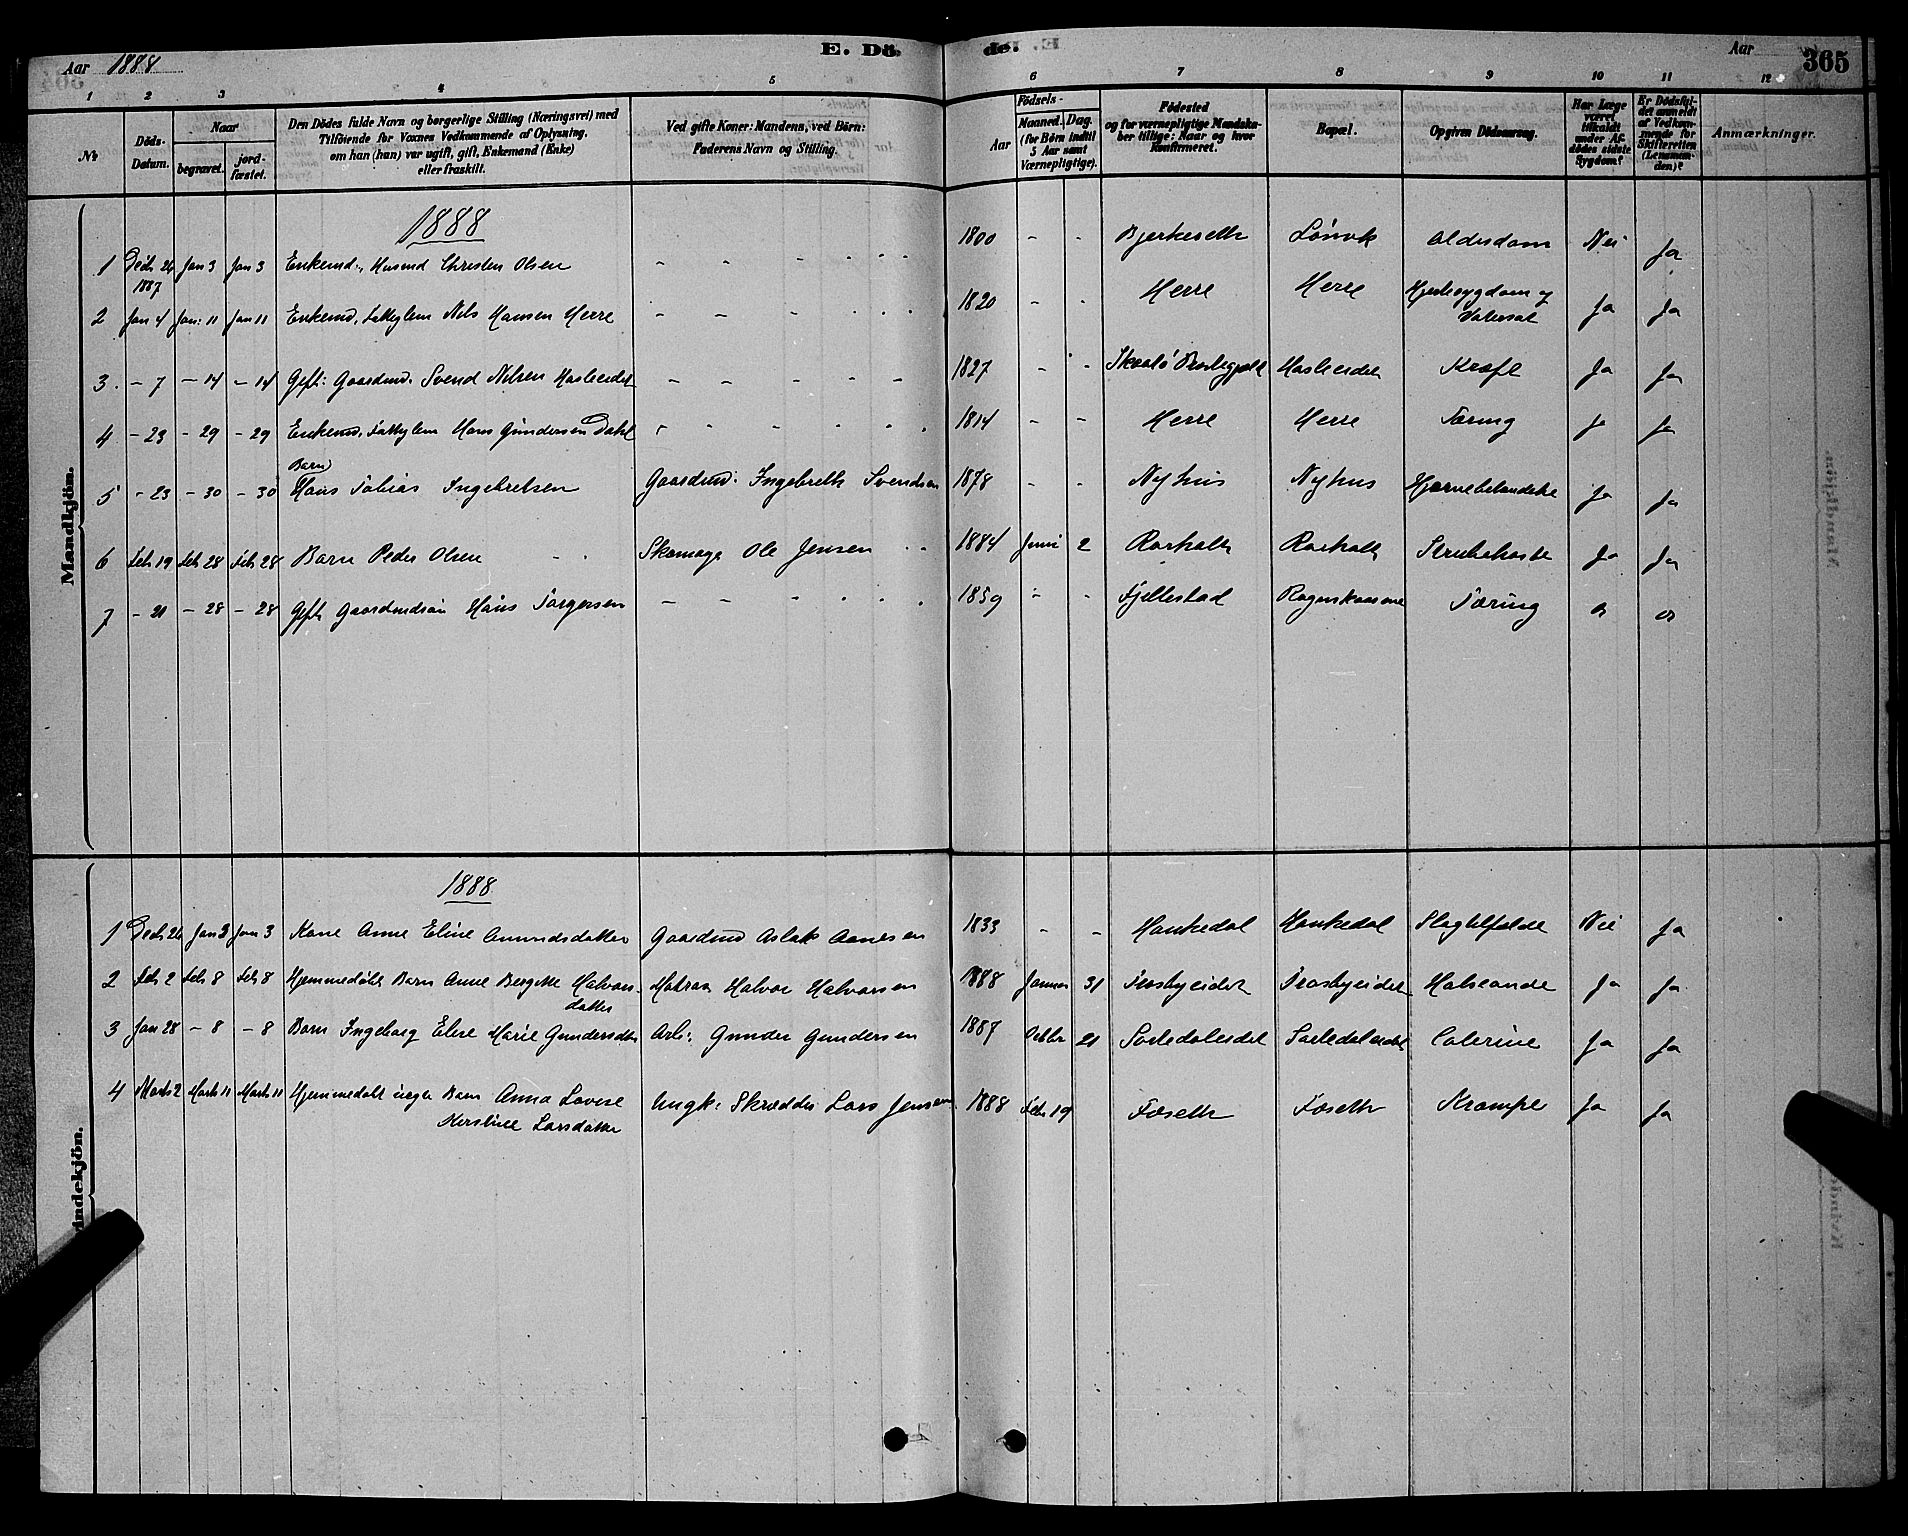 Aar 1888
E. Dö-
de.
Aar
365
1 2 3 4 5 6 7 8 9 10 11 12
No
Döds-Datum.
Naar
begravet.
jord-fæstet.
Den Dödes fulde Navn og borgerlige Stilling (Næringsvei) med
Tilföiende for Voxnes Vedkommende af Oplysning,
om han (hun) var ugift, gift, Enkemand (Enke)
eller fraskilt.
Ved gifte Koner: Mandens, ved Börn:
Faderens Navn og Stilling.
Födsels-
Aar
Maaned. Dag.
(for Börn indtil
5 Aar samt
Værnepligtige).
Födested
og for værnepligtige Mandska-
ber tillige: Naar og hvor
Konfirmeret.
Bopæl.
Opgiven Dödsaarsag.
Har Læge
været
tilkaldt
under Af-
dödes sidste
Sygdom?
Er Dödsfal-
det anmeldt
af Vedkom-
mende for
Skifteretten
(Lensman-
den)?
Anmærkninger.
Mandkjön.
1888
1 Decb 26 1887 Jan 3 Jan 3 Enkemd., Husmd Christen Olsen - - - - - - 1800 - - Bjerkeseth Lönvik Alderdom Nei Ja
2 Jan 4 Jan: 11 Jan 11 Enkemd, Fattiglem Nils Hansen Herre - - - - - - 1820 - - Herre Herre Hjertesygdom og Vatersot Ja Ja
3. - 7 - 14 - 14 Gift: Gaardmd. Svend Nilsen Hasleeidet - - - - - 1827 - - Skaatö Præstegjeld Hasleeidet Kræft Ja Ja
4 - 23 - 29 - 29 Enkemd, Fattiglem Hans Gundersen Dahl - - - - - - 1814 - - Herre Herre Tæring Ja Ja
5 - 23 - 30 - 30 Barn Hans Tobias Ingebretsen Gaardmd: Ingebreth Svendsen 1878 - - Nyhus Nyhus Hjernebetændelse Ja Ja
6 Feb 19 Feb 28 Feb 28 Barn Peder Olsen - - Skomager Ole Jensen - - 1884 Juni 2 Rørholt Rørholt Strubehoste Ja Ja
7 - 21 - 28 - 28 Gift Gaardmdsön Hans Torgersen - - - - - - 1859 - - Fjellestad Rognskaasene Tæring
indekjön.
1888
1 Decb 26 Jan 3 Jan 3 Kone Anne Eline Amundsdatter Gaardmd Aslak Aanesen 1833 - - Hankedal Hankedal Slagtilfælde Nei Ja
2 Feb 2 Feb 8 Feb 8 Hjemmedöbt Barn Anne Bergitte Halvors-
datter Matros Halvor Halvorsen 1888 Januar 31 Trosbyeidet Trosbyeidet Halseonde Ja Ja
3 Jan 28 - 8 - 8 Barn Ingeborg Elise Marie Gundersdtr Arb: Gunder Gundersen 1887 Octbr 21 Sortedaleidet Sortedaleidet Colerine Ja Ja
4 Marts 2 Marts 11 Marts 11 Hjemmedöbt uægte Barn Anna Lovise
Kirstine Larsdatter Ungk: Skrædder Lars Jensen 1888 Feb 19 Foseth Foseth Krampe Ja Ja